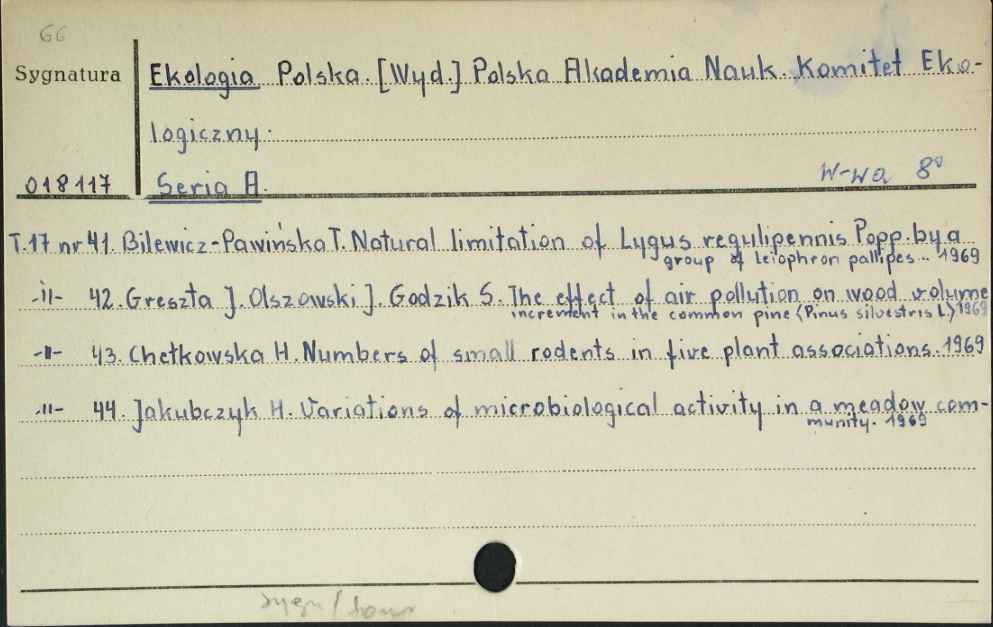 66
Sygnatura
Ekologia Polska. [Wyd.] Polska Akademia Nauk. Komitet Eko-
logiczny.
018117 Seria A. W-wa 8°
T.17 nr 41. Bilewicz-Pawińska T. Natural limitation of Lygus regulipennis Popp. by a
group of Leiophron pallipes... 1969
-II- 42. Greszta J. Olszowski J. Godzik S. The effect of air pollution on wood volume
increment in the common pine (Pinus silvestris L) 1969
-II- 43. Chetkowska H. Numbers of small rodents in five plant associations. 1969
-II- 44. Jakubczyk H. Variations of microbiological activity in a meadow com-
munity. 1969
sygn/